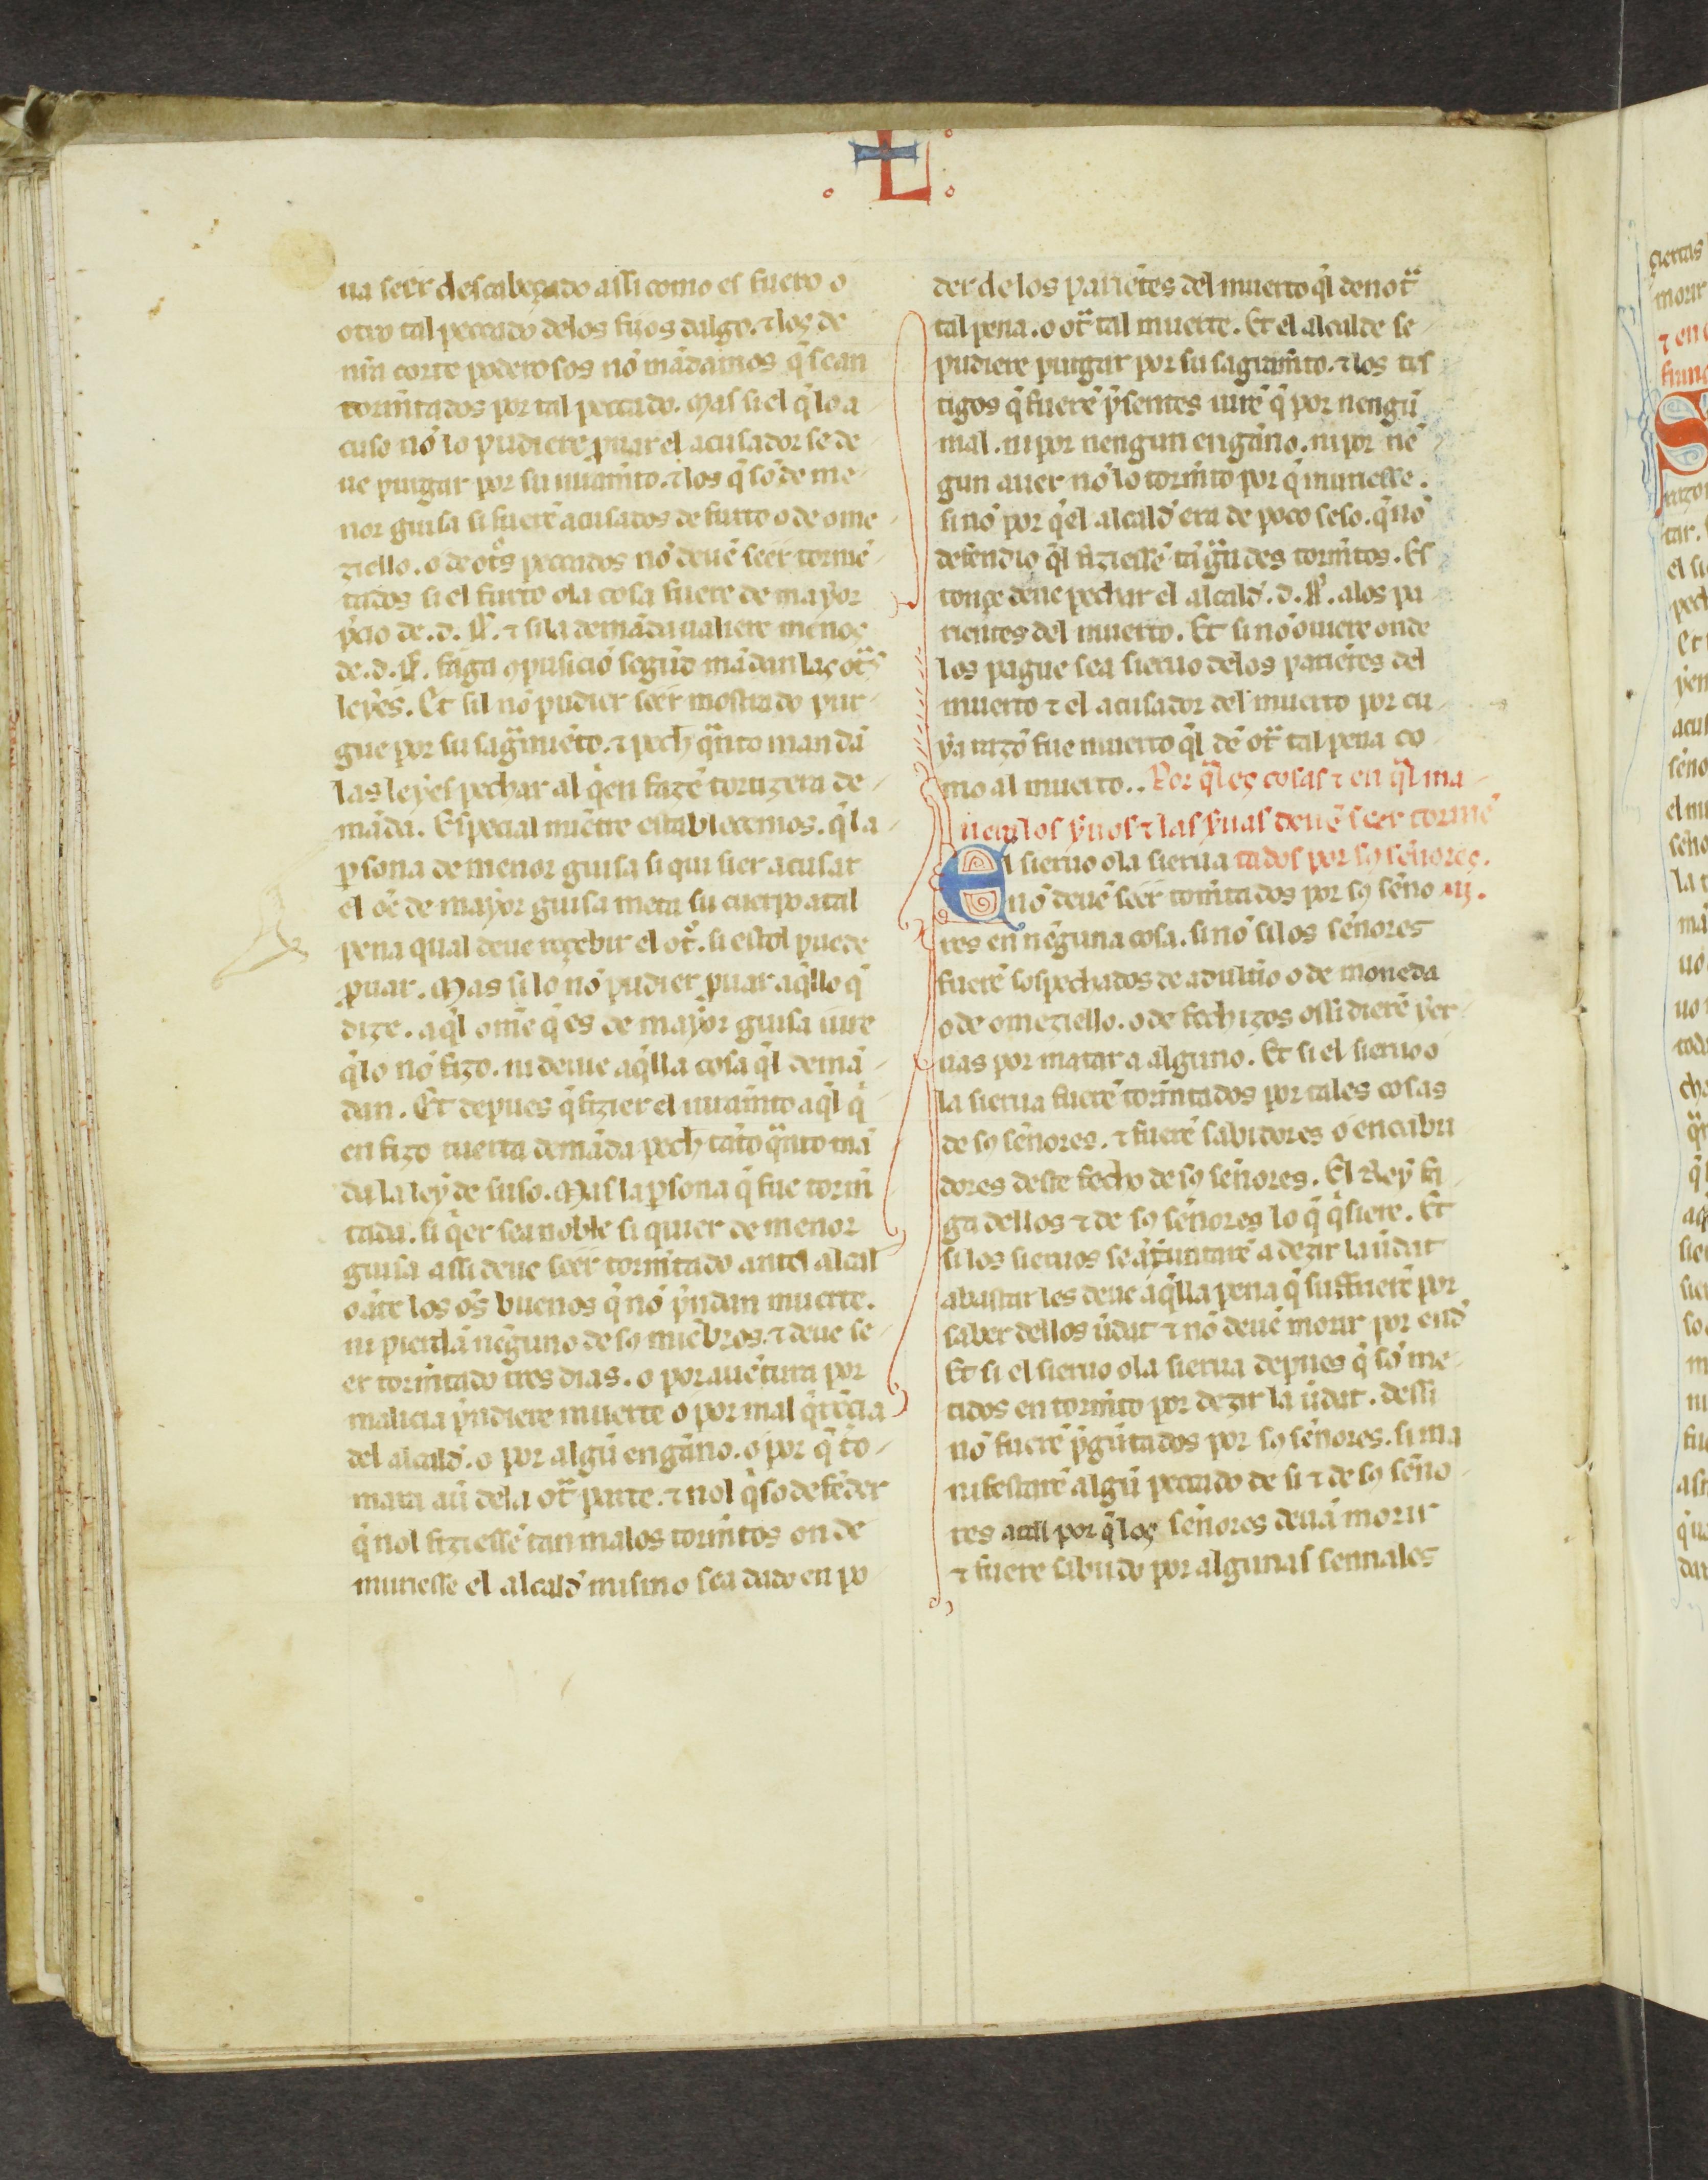 Ł
ua seer descabeçado assi como es fuero o
otro tal peccado delos fijos dalgo. ⁊ los de
nr̃a corte poderosos nõ mãdamos q̃ sean
torm̃tados por tal peccado. Mas si el q̃ lo a
cuso nõ lo pudiere ꝓuar el acusador se de
ue purgar por su iuram̃to. ⁊ los q̃ sõ de me
nor guisa si fuerẽ acusados de furto o de ome
ziello. o de ot̃s peccados nõ deuẽ seer tormẽ
tados si el furto o la cosa fuere de mayor
p̃cio de .d. ss̃. ⁊ si la demãda ualiere menos
de .d. ss̃. faga cõposiciõ segũd mãdan las ot̃s
leyes. Et sil nõ pudier seer mostrado pur
gue por su sag̃mẽto. ⁊ pech q̃nto mandã
las leyes pechar al q̃en fazẽ tortizera de
mãda. Especial miẽtre establecemos. q̃ la
ꝑsona de menor guisa si quisier acusar
el oẽ de mayor guisa meta su cuerpo a tal
pena qual deue reçebir el ot̃. si estol puede
ꝓuar. Mas si lo nõ pudier ꝓuar aq̃llo q̃
dize. aq̃l ome q̃ es de mayor guisa iure
q̃ lo nõ fizo. ni deue aq̃lla cosa q̃l demã
dan. Et depues q̃ fizier el iuram̃to aq̃l q̃
en fizo tuerta demãda pech tãto q̃nto mã
da la ley de suso. Mas la ꝑsona q̃ fue torm̃
tada. si q̃er sea noble si quier de menor
guisa assi deue seer torm̃tado antel alcal
o ãte los oẽs buenos q̃ nõ p̃ndan muerte.
ni pierdã neguno de sos miẽbros. ⁊ deue se
er torm̃tado tres dias. o por auẽtura por
malicia p̃ndiere muerte o por mal q̃rẽcia
del alcald̃. o por algũ engãno. o por q̃ to
mara aũ dela ot̃ parte. ⁊ nol q̃so defẽder
q̃ nol fiziessẽ tan malos torm̃tos onde
muriesse el alcald̃ mismo sea dado en po
der de los pariẽtes del muerto q̃l den ot̃
tal pena. o ot̃ tal muerte. Et el alcalde se
pudiere purgar por su sagram̃to. ⁊ los tes
tigos q̃ fuerẽ p̃sentes iurẽ q̃ por nengũ
mal. ni por nengun engãno. ni por nẽ
gun auer nõ lo torm̃to por q̃ muriesse.
si nõ por q̃ el alcald̃ era de poco seso. q̃ nõ
defendio q̃l fiziessẽ tã g̃ndes torm̃tos. Es
tonçe deue pechar el alcald̃ .d. ss̃. a los pa
rientes del muerto. Et si nõ ouiere onde
los pague sea sieruo delos pariẽtes del
muerto ⁊ el acusador del muerto por cu
ya razõ fue muerto q̃l dẽ ot̃ tal pena co
mo al muerto.. Por q̃les cosas ⁊ en q̃l ma
nera los s̃uos ⁊ las s̃uas deuẽ seer tormẽ
El sieruo o la sierua tados por sos señores.
nõ deuẽ seer torm̃tados por sos seño iij.
res en neguna cosa. si nõ si los señores
fuerẽ sospechados de adult̃io o de moneda
o de omeziello. o de fechizos o si dierẽ yer
uas por matar a alguno. Et si el sieruo o
la sierua fuerẽ torm̃tados por tales cosas
de sos señores. ⁊ fuerẽ sabidores o encubri
dores deste fecho de sos señores. El Rey fa
ga dellos ⁊ de sos señores lo q̃ q̃siere. Et
si los sieruos se auẽturarẽ a dezir la ũdat
abastar les deue aq̃lla pena q̃ suffrierẽ por
saber dellos ũdat ⁊ nõ deuẽ morir por end̃
Et si el sieruo o la sierua depues q̃ sõ me
tidos en torm̃to por dezir la ũdat. dessi
nõ fuerẽ p̃gũtados por sos señores. si ma
nifestarẽ algũ peccado de si ⁊ de sos seño
res atal por q̃ los señores deuã morir
⁊ fuere sabudo por algunas sennales